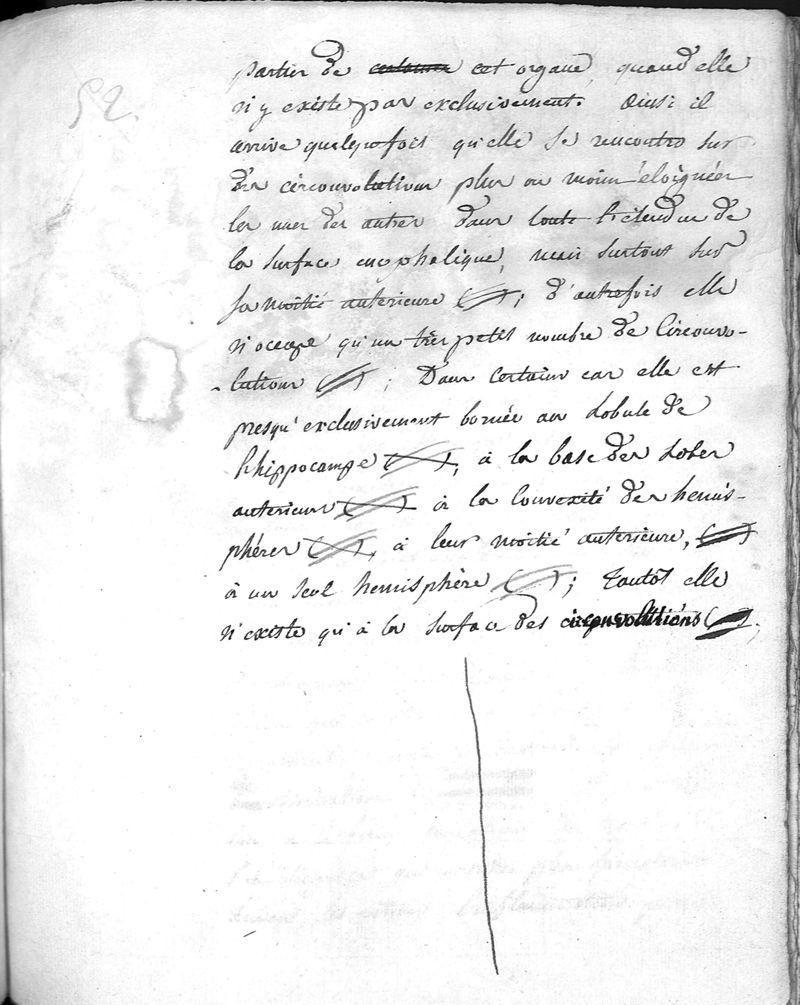 52.
parties de cet organe, quand elle
n'y existe pas exclusivement. Ainsi il
arrive quelquefois qu'elle se rencontre sur
des circonvolutions plus ou moins éloignées
les unes des autres dans toute l'étendue de
la surface encephalique, mais surtout sur
sa moitié anterieure ( ); d'autrefois elle
n'occupe qu'un très petit nombre de Circonvo-
-lutions ( ); Dans certains cas elle est
presqu'exclusivement bornée au Lobule de
l'hippocampe ( ), à la base des Lobes
anterieurs ( ) à la Convexité des hemis-
phères ( ), à leur moitié anterieure, ( )
à un seul hemisphère ( ); tantôt elle
n'existe qu'à la surface des circonvolutions ( );